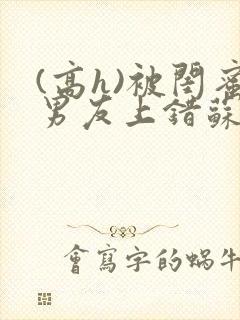 (高h)被閨蜜
男友上錯蘇
會寫字的蝸牛